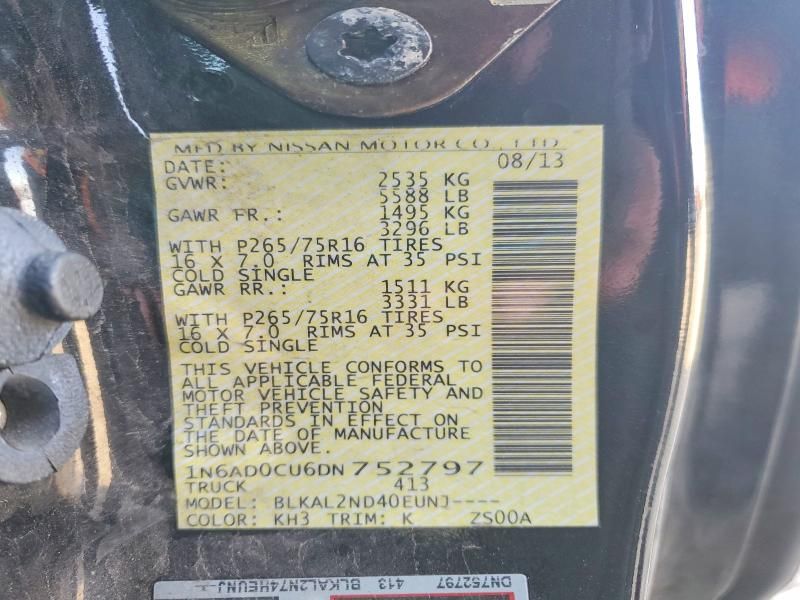 MFD BY NISSAN MOTOR CO., LTD
DATE: 08/13
GVWR: 2535 KG
5588 LB
GAWR FR.: 1495 KG
3296 LB
WITH P265/75R16 TIRES
16 X 7.0 RIMS AT 35 PSI
COLD SINGLE
GAWR RR.: 1511 KG
3331 LB
WITH P265/75R16 TIRES
16 X 7.0 RIMS AT 35 PSI
COLD SINGLE
THIS VEHICLE CONFORMS TO
ALL APPLICABLE FEDERAL
MOTOR VEHICLE SAFETY AND
THEFT PREVENTION
STANDARDS IN EFFECT ON
THE DATE OF MANUFACTURE
SHOWN ABOVE.
1N6AD0CU6DN752797
TRUCK 413
MODEL: BLKAL2ND40EUNJ----
COLOR: KH3 TRIM: K ZS00A
DN752797 413 BLKAL2N74HEUNJ-